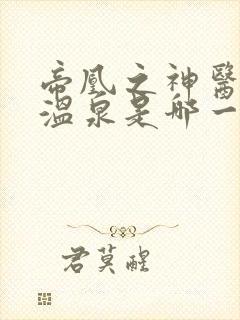 帝凰之神醫
溫泉是哪一
君莫醒